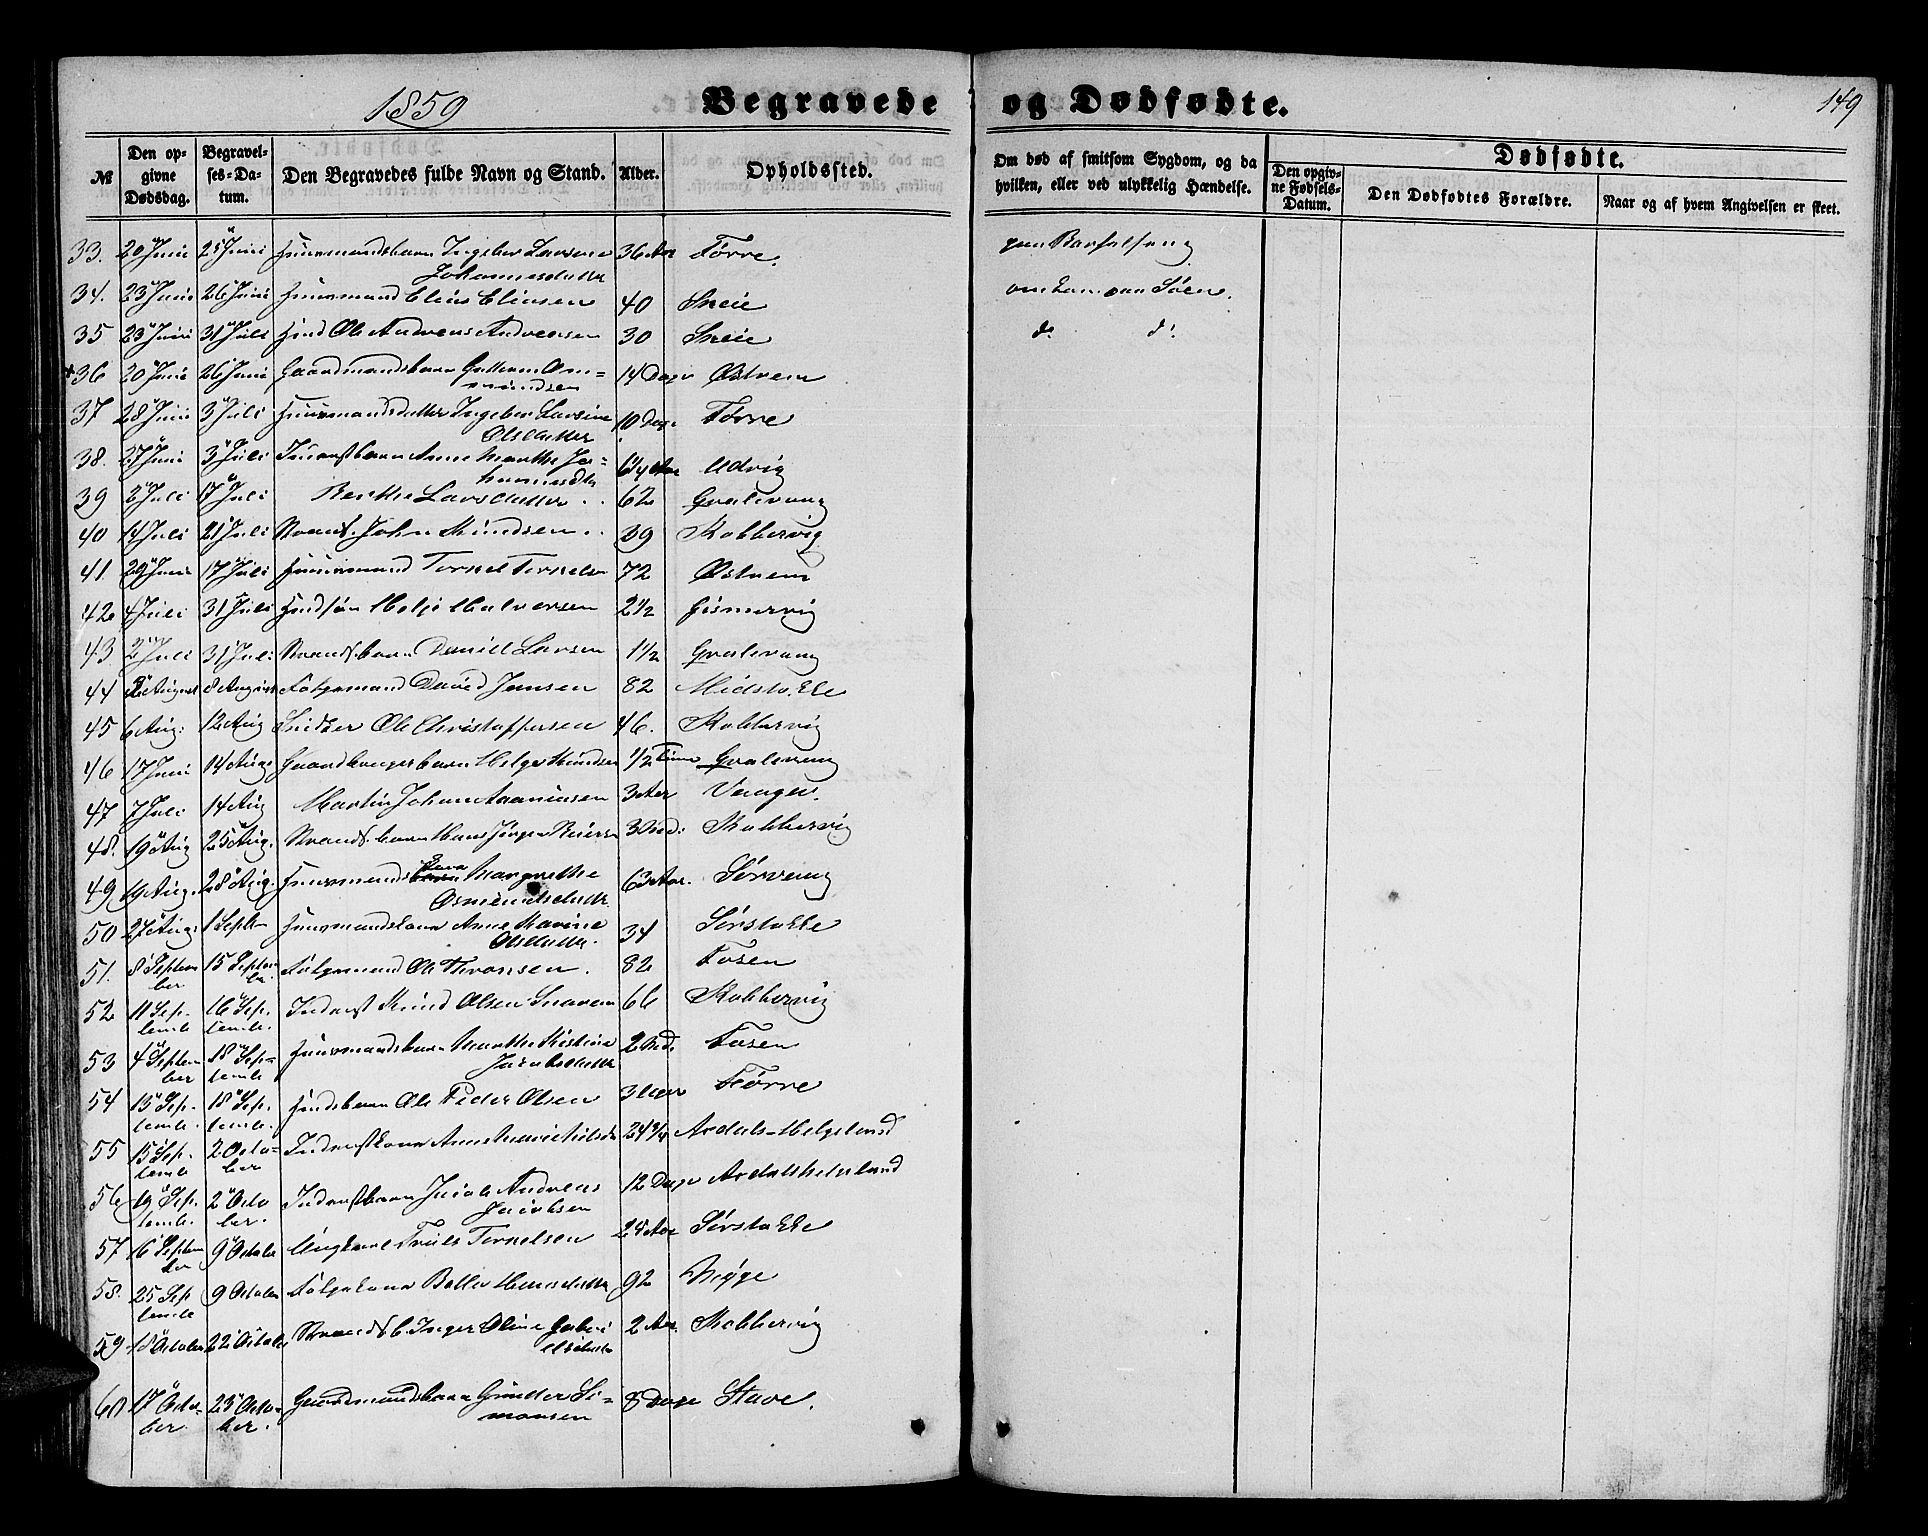 1859
Begravede og Dødfødte.
149
№
Den opgivne Dødsdag.
Begravelses-Datum.
Den Begravedes fulde Navn og Stand.
Alder.
Opholdssted.
Om død af smitsom Sygdom, og da hvilken, eller ved ulykkelig Hændelse.
Dødfødte.
Den opgivne Fødsels-Datum.
Den Dødfødtes Forældre.
Naar og af hvem Angivelsen er skeet.
33. 20 Juni 25 Juni Ingeber Larsine Johannesdatter 36 Aar Førre.
34. 23 Juni 26 Juni Huusmand Elias Eliasen 40 Sneie
35 23 Juni 31 Juli Ole Andreas Andreasen 30 Sneie d: d:
+36 20 Juni 26 Juni Gaardmandsbarn Guttorm Osmundsen 14 Dage Østrem
37 28 Juni 3 Juli Huusmandsdatter Ingeber Larsine Olsdatter 10 Dage Førre
38. 27 Juni 3 Juli Inderstbarn Anne Marthe Johannesdtr Aar Udvig
39 2 Juli 17 Juli Berthe Larsdatter 62
40 14 Juli 21 Juli Strands. John Knudsen 39 Kobbervig
41 29 Juni 17 Juli Huusmand Tornel Tornelsen 72 Østrem
42 4 Juli 31 Juli Helje Halvorsen 2 1/2 Gismervig
43 2 Juli 31 Juli Strands.barn Daniel Larsen 1 1/2
44 2 August 8 August Følgemand David Jansen 82 Midstokke
45 6 Aug: 12 Aug Snidker Ole Christoffersen 46. Kobbervig
46 17 Juni 14 Aug: Gaardbrugerbarn Helge Knudsen 1/2 Time
47 7 Juli 14 Aug Martin Johan Aanensen 3 Aar Vaager.
48. 19 Aug 25 Aug. Strands.barn Hans Jørgen Reiersen 3 Md: Kobbervig
49 19 Aug. 28 Aug. Huusmandskone Margrethe Osmundsdatter 63 Aar. Sørvaag
50 27 Aug: 1 Septb Huusmandskone Anne Marine Olsdatter. 34 Sørstokke
51. 8 September 15 September Følgemand Ole Thronsen. 82 Fosen
52 11 Septemb. 16 Septemb. Inderst Knud Olsen 66 Kobbervig
53 4 September 18 Septemb Huusmandsbarn Marthe Kistine Jacobsdatter 2 Md. Fosen
54 13 Septemb. 18 Septemb. Ole Peder Olsen 3 Uger Førre
55 15 Septemb 2 October Inderstkone Anne Marie Nilsdr 24 3/4 Avdals-Helgeland
56 19 Septemb. 2 October. Inderstbarn Jacob Andreas Jacobsen 12 Dage Avdalshelgeland
57 16 September 9 October Ungkarl Truls Tornelsen 25 Aar Sørstokke
58. 25 Septemb 9 October Følgekone Hansdatter 92 Høye
59 18 October 22 October Strands.b. Inger Oline Gabrielsdatter 2 Aar. Kobbervig
60 17 October. 23 October. Gaardmandsbarn Gunder Simonsen 8 Dage Stave.